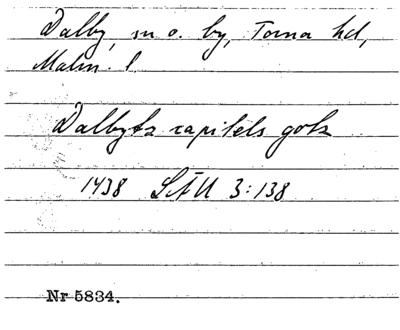 Dalby, sn o. by, Torna hd,
Malm. l
Dalbyks capitels gotz
1438 LÄU 3:138
Nr 5834.